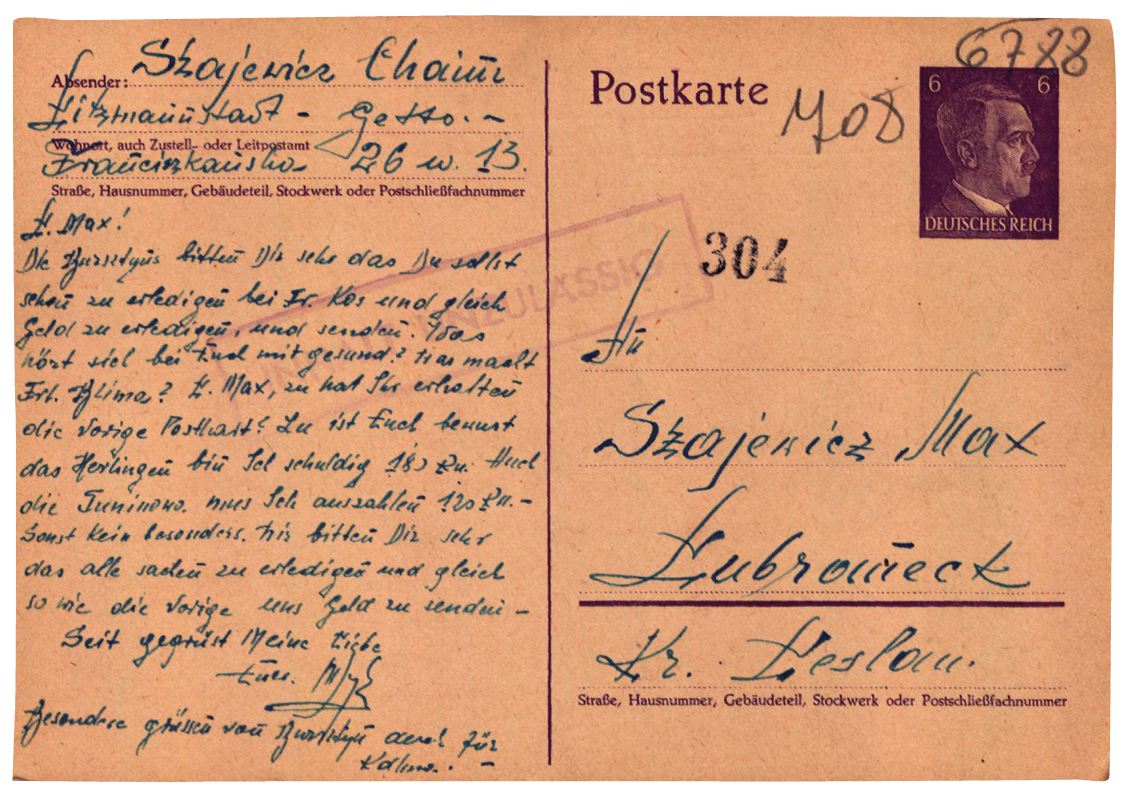 Absender: Szajewicz Chaim
Litzmannstadt - Getto. -
Wohnort, auch Zustell- oder Leitpostamt
26 w. 13.
Straße, Hausnummer, Gebäudeteil, Stockwerk oder Postschließfachnummer
L. Max!
Die bitten Dir sehr das Du sollst
schon zu erledigen bei Fr. Kos und gleich
Geld zu erledigen, und senden. Was
hört sich bei Euch mit gesund? Was macht
Frl. Blima? L. Max, zu hat Ihr erhalten
die vorige Postkart? Zu ist Euch bewust
das bin Ich schuldig
die mus Ich auszahlen 120
Sonst kein besonders. Wir bitten Dir sehr
das alle sachen zu erledigen und gleich
so wie die vorige uns Geld zu senden -
Seit gegrüst Meine Liebe
Euer.
Besondere grüssen von
Postkarte
6788
708
6 6
DEUTSCHES REICH
304
UNZULÄSSIG
An
Szajewicz Max
Lubraneck
Kr. Leslau.
Straße, Hausnummer, Gebäudeteil, Stockwerk oder Postschließfachnummer